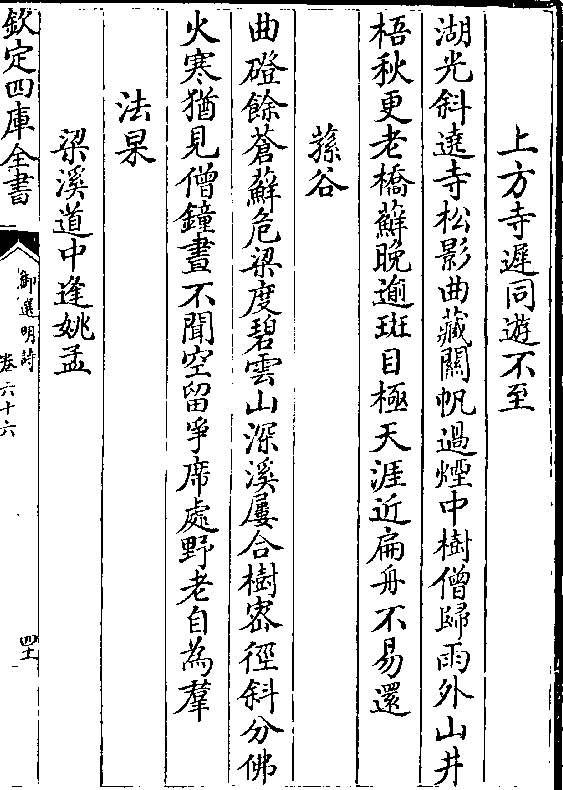 上方寺遲同遊不至
湖光斜遶寺松影曲藏關帆過煙中樹僧歸雨外山井
梧秋更老橋蘚晚逾斑目極天涯近扁舟不易還
蓀谷
曲磴餘蒼蘚危梁度碧雲山深溪屢合樹密徑斜分佛
火寒猶見僧鐘晝不聞空留爭席處野老自為羣
法杲
梁溪道中逢姚孟
欽定四庫全書
御選明詩
卷六十六